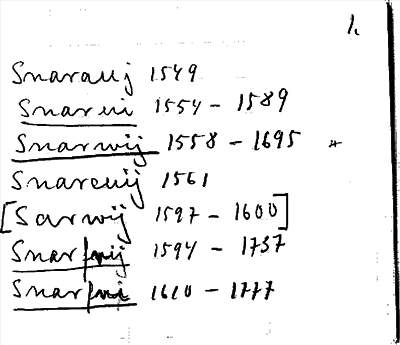 1.
Snarauij 1549
Snarui 1554 - 1589
Snarwij 1558 - 1695 *
Snareuij 1561
[Sarwij 1597 - 1600]
Snarfwij 1594 - 1737
Snarfwi 1610 - 1777